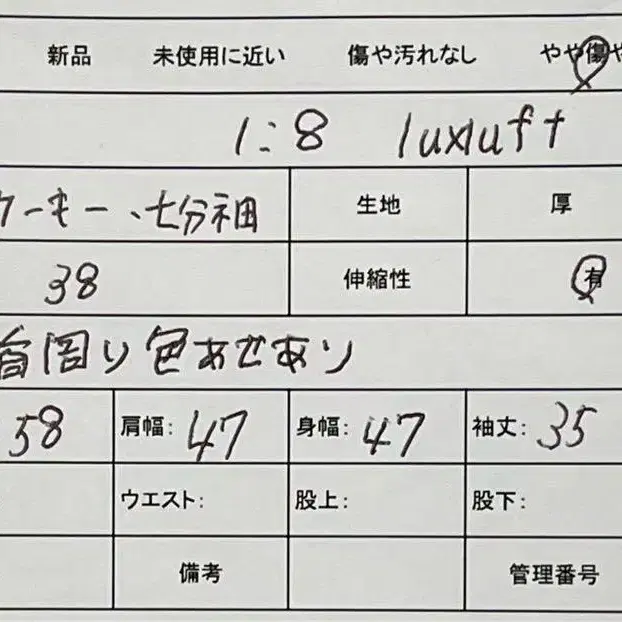 新品 未使用に近い 傷や汚れなし やや傷や
1:8 luxluft
カーキー、七分袖 生地 厚
38 伸縮性 有
首周り色あせあり
58 肩幅: 47 身幅: 47 袖丈: 35
ウエスト: 股上: 股下:
備考 管理番号